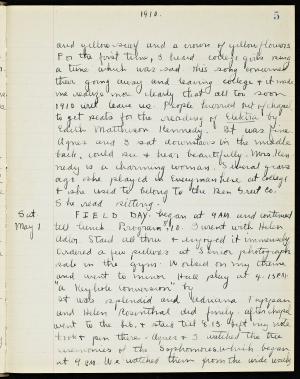 1910.
5
and yellow scarf and a crown of yellow flowers.
For the first time, I heard college girls sing
a tune which was sad this song concerned
their going away and leaving college & it made
me realize more clearly that all too soon
1910 will leave us. People hurried out of chapel
to get seats for the reading of Elektra by
Edith Matthison Kennedy. It was fine.
Agnes and I sat downstairs in the middle
back, could see & hear beautifully. Mrs. Ken-
nedy is a charming woman. Several years
ago she played in Everyman here at college
& she used to belong to the Ben Greet Co.
She read sitting.
Sat
May 1
FIELD DAY. began at 9 A.M. and continued
till lunch. Program 10. I went with Helen
Adler. Stood all thru & enjoyed it immensely.
Ordered a few pictures at Senior photograph
sale in the gym. Worked on my theme
and went to minor Hall play at 4.15 P.M.
"a Keyhole Conversion" by
It was splendid and
and Helen Rosenthal did finely. After chapel
went to the lib. & staid till 8.15. Left my note
book & pen there. Agnes & I watched the tree
ceremonies of the Sophomores, which began
at 9 P.M. We watched them from the wide walk